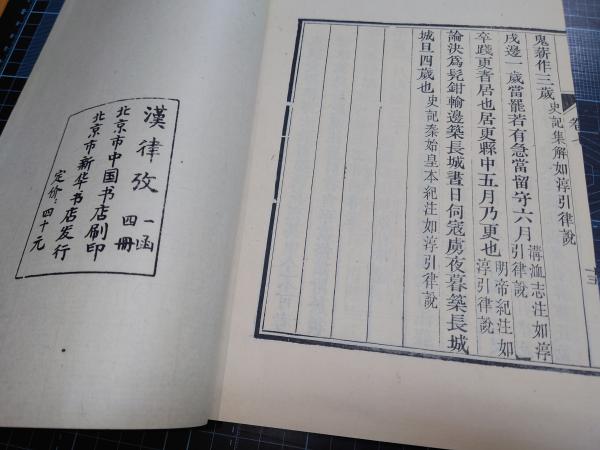 鬼薪作三歲史記集解如淳引律說
戍邊一歲當罷若有急當留守六月溝洫志注如淳引律說
卒踐更者居也居更縣中五月乃更也明帝紀注如淳引律說
論決爲髡鉗輸邊築長城晝日伺寇虜夜暮築長城
城旦四歲也史記秦始皇本紀注如淳引律說
十三
漢律攷 一函四冊
北京市中国书店刷印
北京市新华书店发行
定价：四十元